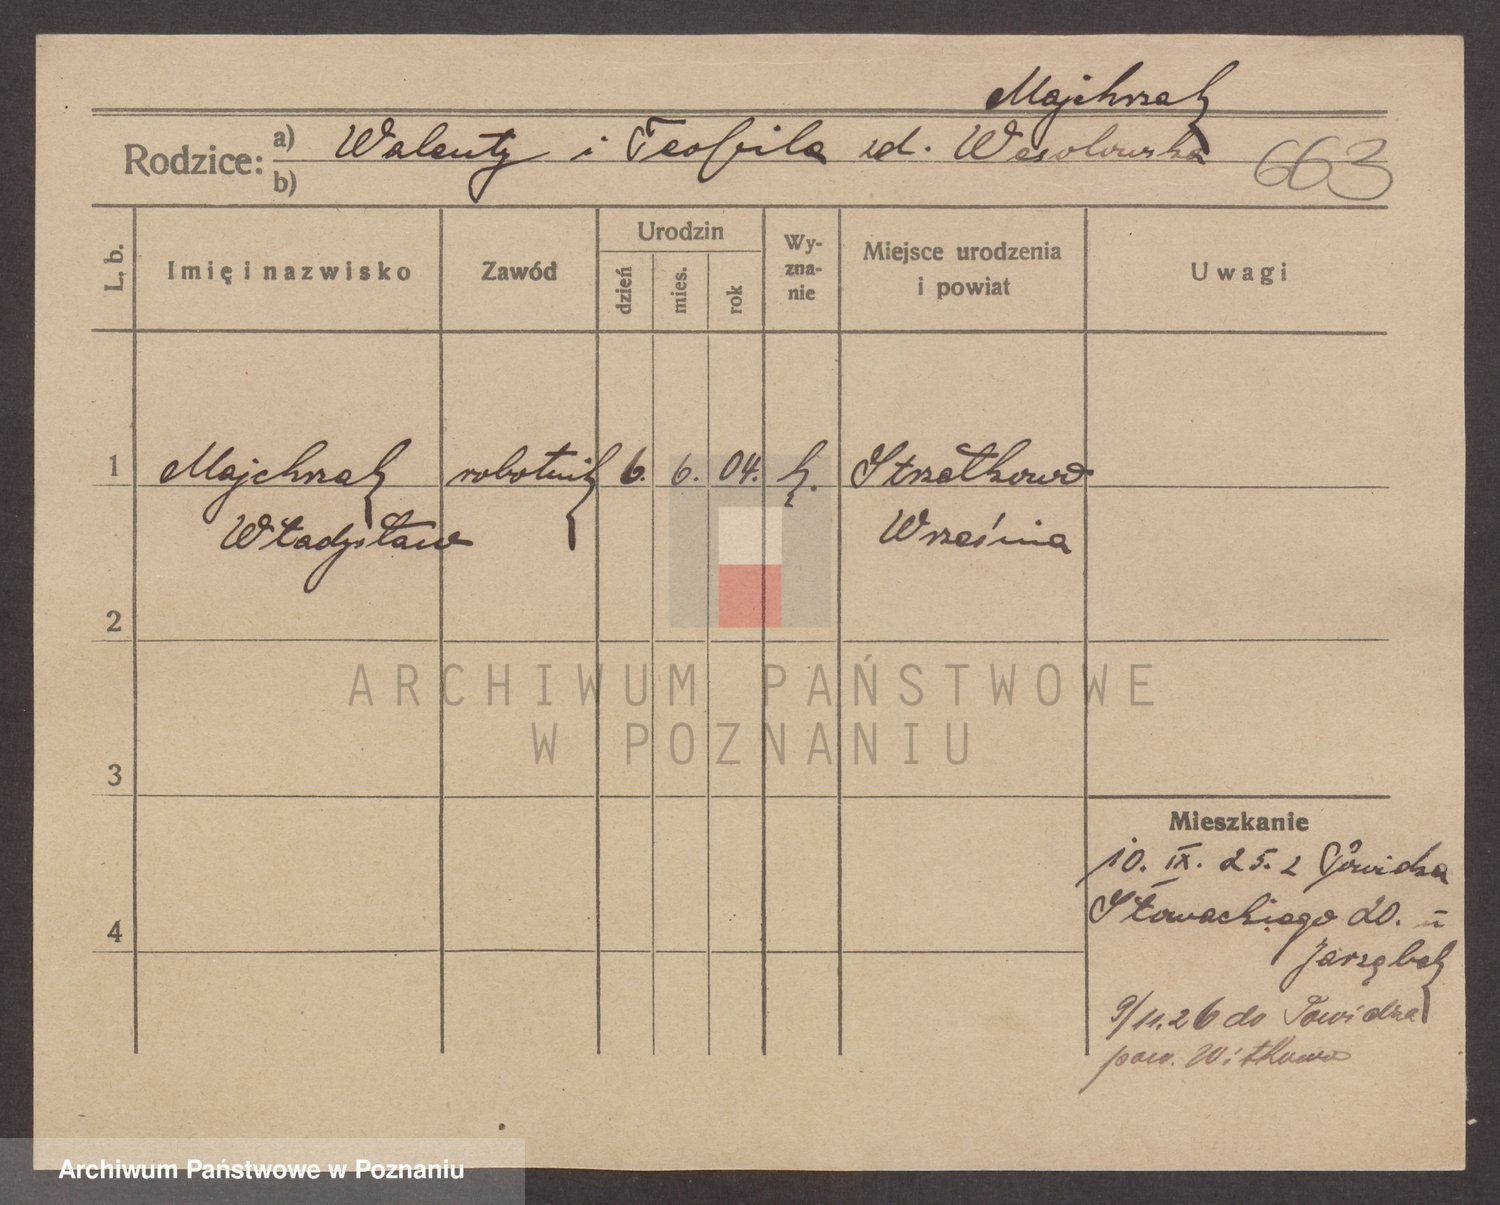 Majchrzak
Rodzice: a) Walenty i Teofila zd. Wesołowska
b)
663
L. b.
Imię i nazwisko
Zawód
Urodzin
dzień
mies.
rok
Wy-
zna-
nie
Miejsce urodzenia
i powiat
Uwagi
1 Majchrzak robotnik 6. 6. 04. k. Strzałkowo
Władysław Września
2
3
4
Mieszkanie
10. IX. 25. z Powidza
Słowackiego 20. II
Jarząbek
9/11.26 do Powidza
pow. Witkowo
ARCHIWUM PAŃSTWOWE
W POZNANIU
Archiwum Państwowe w Poznaniu